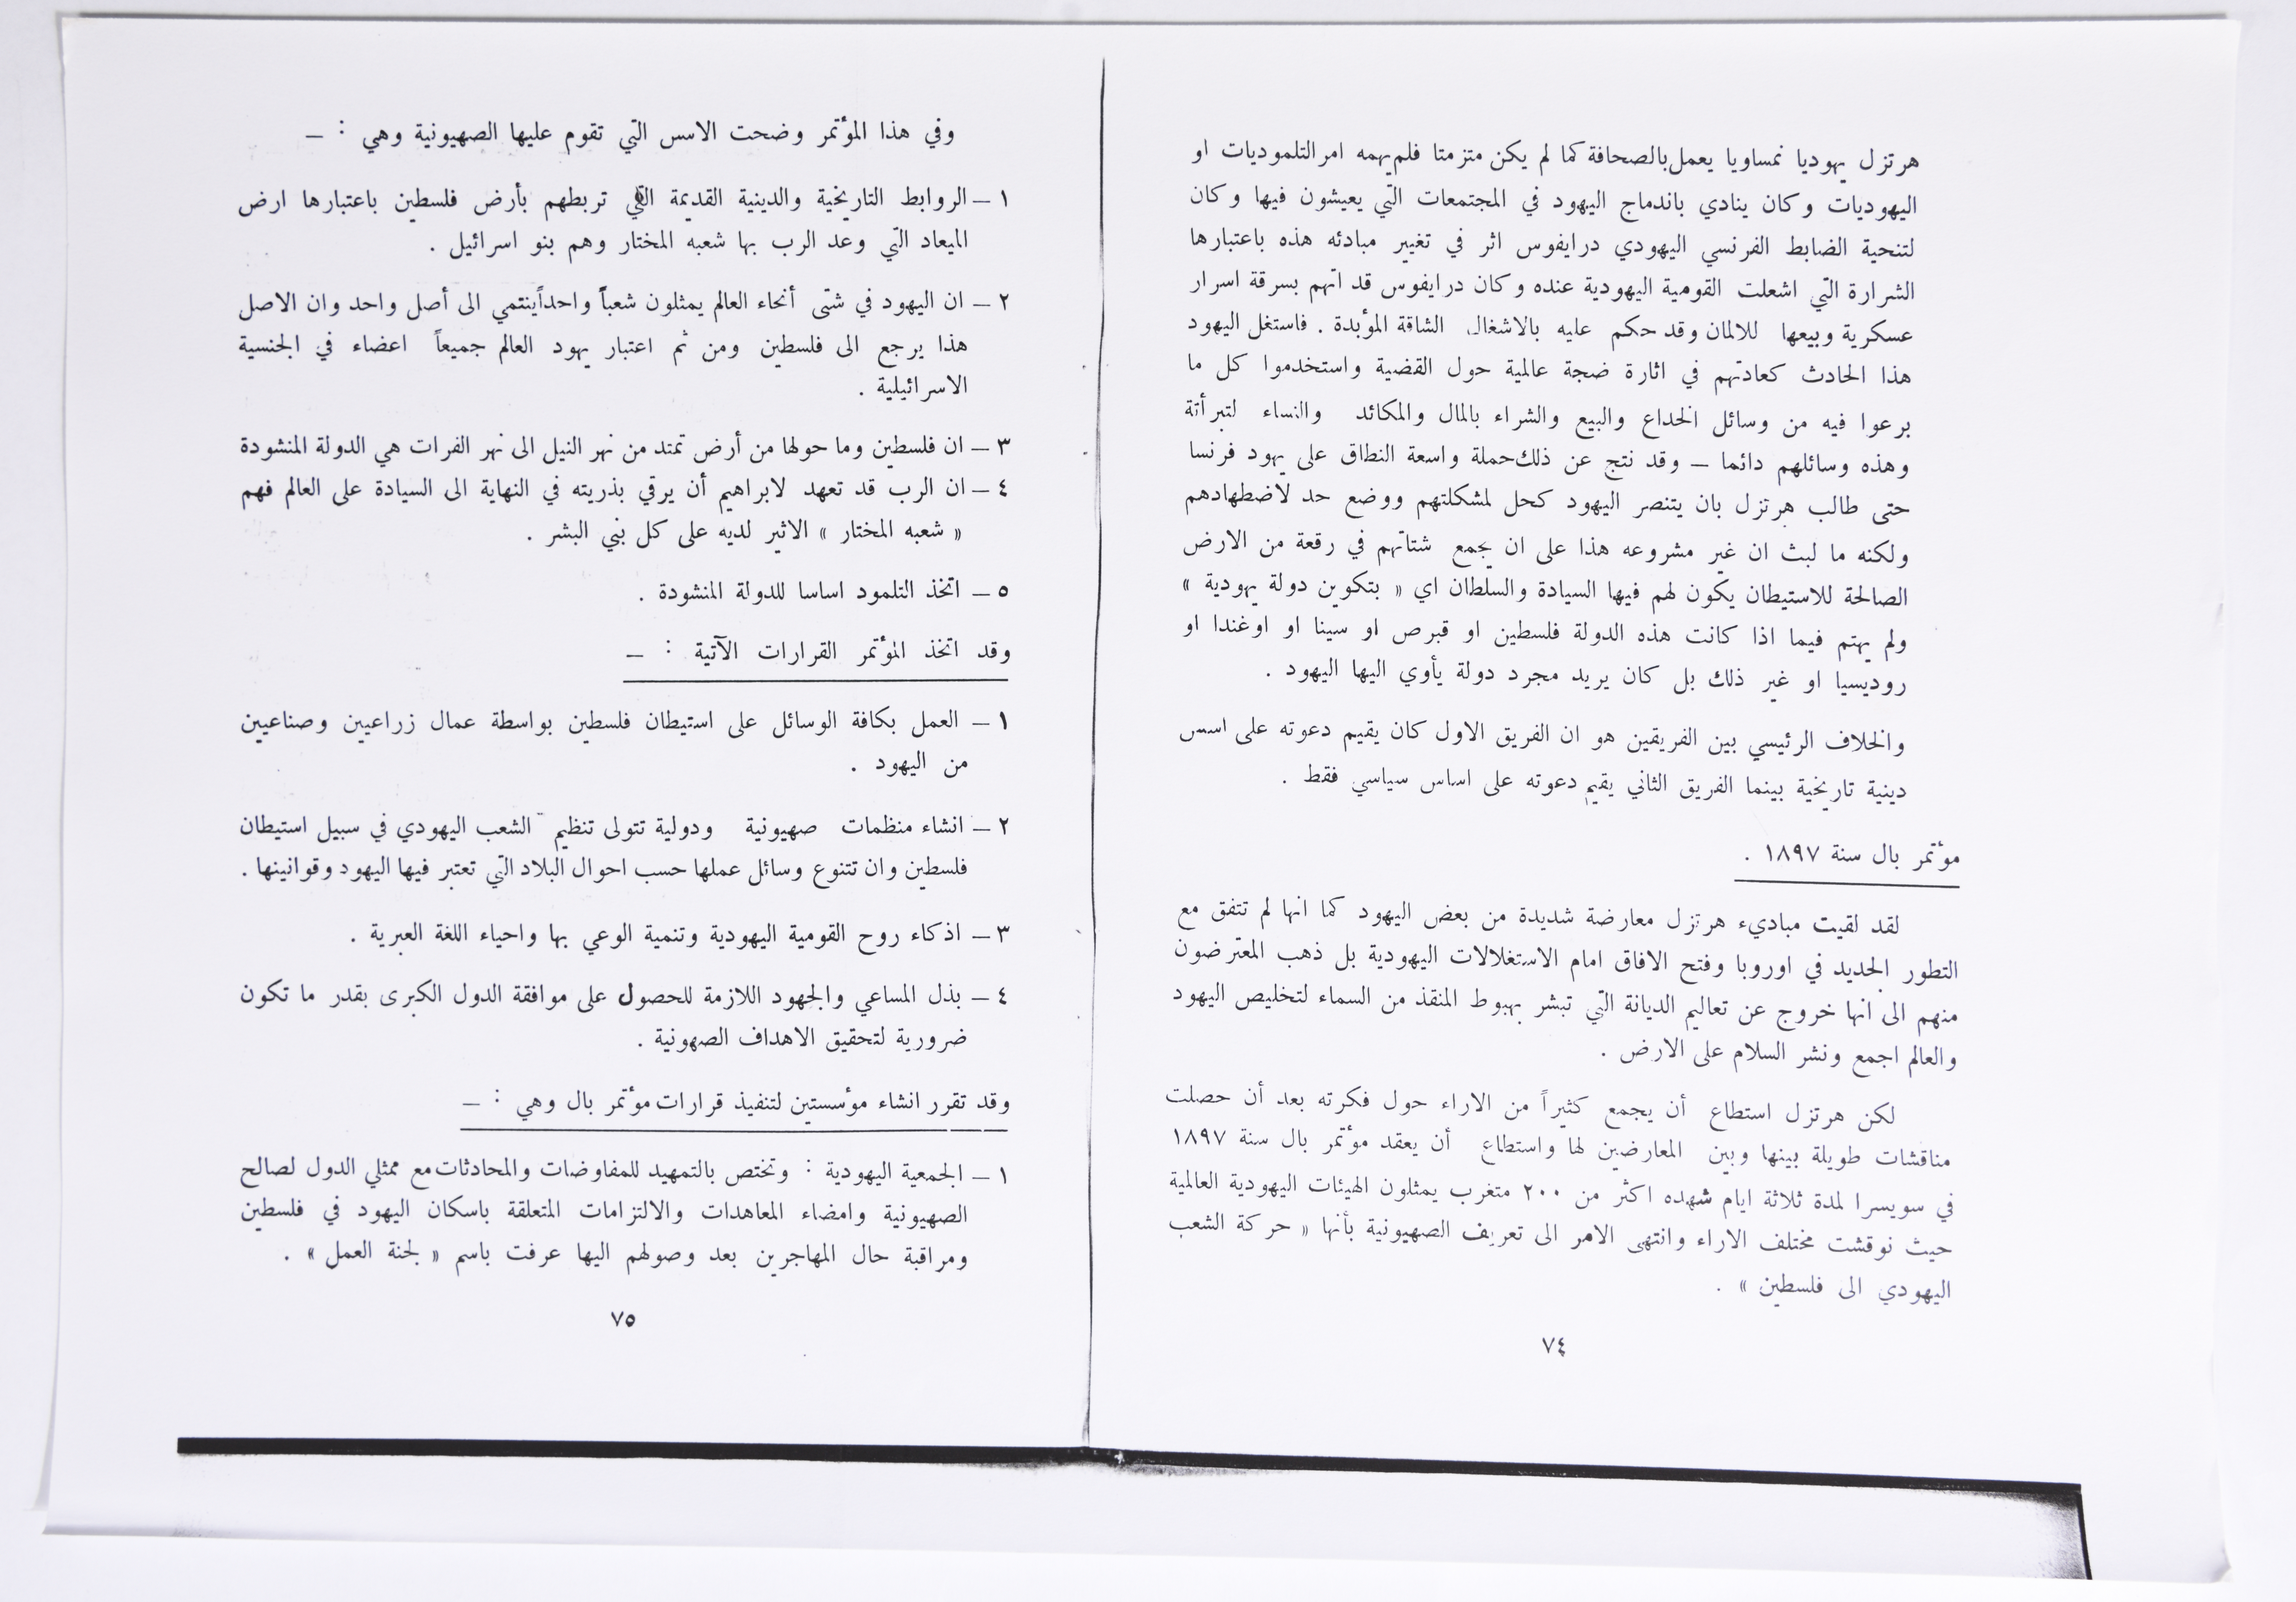 هرتزل يهوديا نمساويا يعمل بالصحافة كما لم يكن متزمتا فلم يهمه امر التلموديات او
اليهوديات وكان ينادي باندماج اليهود في المجتمعات التي يعيشون فيها وكان
لتنحية الضابط الفرنسي اليهودي درايفوس اثر في تغيير مبادئه هذه باعتبارها
الشرارة التي اشعلت القومية اليهودية عنده وكان درايفوس قد اتهم بسرقة اسرار
عسكرية وبيعها للالمان وقد حكم عليه بالاشغال الشاقة المؤبدة . فاستغل اليهود
هذا الحادث كعادتهم في اثارة ضجة عالمية حول القضية واستخدموا كل ما
برعوا فيه من وسائل الخداع والبيع والشراء بالمال والمكائد والنساء لتبرأتة
وهذه وسائلهم دائما — وقد نتج عن ذلك حملة واسعة النطاق على يهود فرنسا
حتى طالب هرتزل بان يتنصر اليهود كحل لمشكلتهم ووضع حد لاضطهادهم
ولكنه ما لبث ان غير مشروعه هذا على ان يجمع شتاتهم في رقعة من الارض
الصالحة للاستيطان يكون لهم فيها السيادة والسلطان اي « بتكوين دولة يهودية »
ولم يهتم فيما اذا كانت هذه الدولة فلسطين او قبرص او سينا او اوغندا او
روديسيا او غير ذلك بل كان يريد مجرد دولة يأوي اليها اليهود .
والخلاف الرئيسي بين الفريقين هو ان الفريق الاول كان يقيم دعوته على اسس
دينية تاريخية بينما الفريق الثاني يقيم دعوته على اساس سياسي فقط .
مؤتمر بال سنة ١٨٩٧ .
لقد لقيت مباديء هرتزل معارضة شديدة من بعض اليهود كما انها لم تتفق مع
التطور الجديد في اوروبا وفتح الافاق امام الاستغلالات اليهودية بل ذهب المعترضون
منهم الى انها خروج عن تعاليم الديانة التي تبشر بهبوط المنقذ من السماء لتخليص اليهود
والعالم اجمع ونشر السلام على الارض .
لكن هرتزل استطاع أن يجمع كثيراً من الاراء حول فكرته بعد أن حصلت
مناقشات طويلة بينها وبين المعارضين لها واستطاع أن يعقد مؤتمر بال سنة ١٨٩٧
في سويسرا لمدة ثلاثة ايام شهده اكثر من ٢٠٠ متغرب يمثلون الهيئات اليهودية العالمية
حيث نوقشت مختلف الاراء وانتهى الامر الى تعريف الصهيونية بأنها « حركة الشعب
اليهودي الى فلسطين » .
٧٤
وفي هذا المؤتمر وضحت الاسس التي تقوم عليها الصهيونية وهي : —
١ — الروابط التاريخية والدينية القديمة التي تربطهم بأرض فلسطين باعتبارها ارض
الميعاد التي وعد الرب بها شعبه المختار وهم بنو اسرائيل .
٢ — ان اليهود في شتى أنحاء العالم يمثلون شعباً واحداً ينتمي الى أصل واحد وان الاصل
هذا يرجع الى فلسطين ومن ثم اعتبار يهود العالم جميعاً اعضاء في الجنسية
الاسرائيلية .
٣ — ان فلسطين وما حولها من أرض تمتد من نهر النيل الى نهر الفرات هي الدولة المنشودة
٤ — ان الرب قد تعهد لابراهيم أن يرقي بذريته في النهاية الى السيادة على العالم فهم
« شعبه المختار » الاثير لديه على كل بني البشر .
٥ — اتخذ التلمود اساسا للدولة المنشودة .
وقد اتخذ المؤتمر القرارات الآتية : —
١ — العمل بكافة الوسائل على استيطان فلسطين بواسطة عمال زراعيين وصناعيين
من اليهود .
٢ — انشاء منظمات صهيونية ودولية تتولى تنظيم الشعب اليهودي في سبيل استيطان
فلسطين وان تتنوع وسائل عملها حسب احوال البلاد التي تعتبر فيها اليهود وقوانينها .
٣ — اذكاء روح القومية اليهودية وتنمية الوعي بها واحياء اللغة العبرية .
٤ — بذل المساعي والجهود اللازمة للحصول على موافقة الدول الكبرى بقدر ما تكون
ضرورية لتحقيق الاهداف الصهونية .
وقد تقرر انشاء مؤسستين لتنفيذ قرارات مؤتمر بال وهي : —
١ — الجمعية اليهودية : وتختص بالتمهيد للمفاوضات والمحادثات مع ممثلي الدول لصالح
الصهيونية وامضاء المعاهدات والالتزامات المتعلقة باسكان اليهود في فلسطين
ومراقبة حال المهاجرين بعد وصولهم اليها عرفت باسم « لجنة العمل » .
٧٥